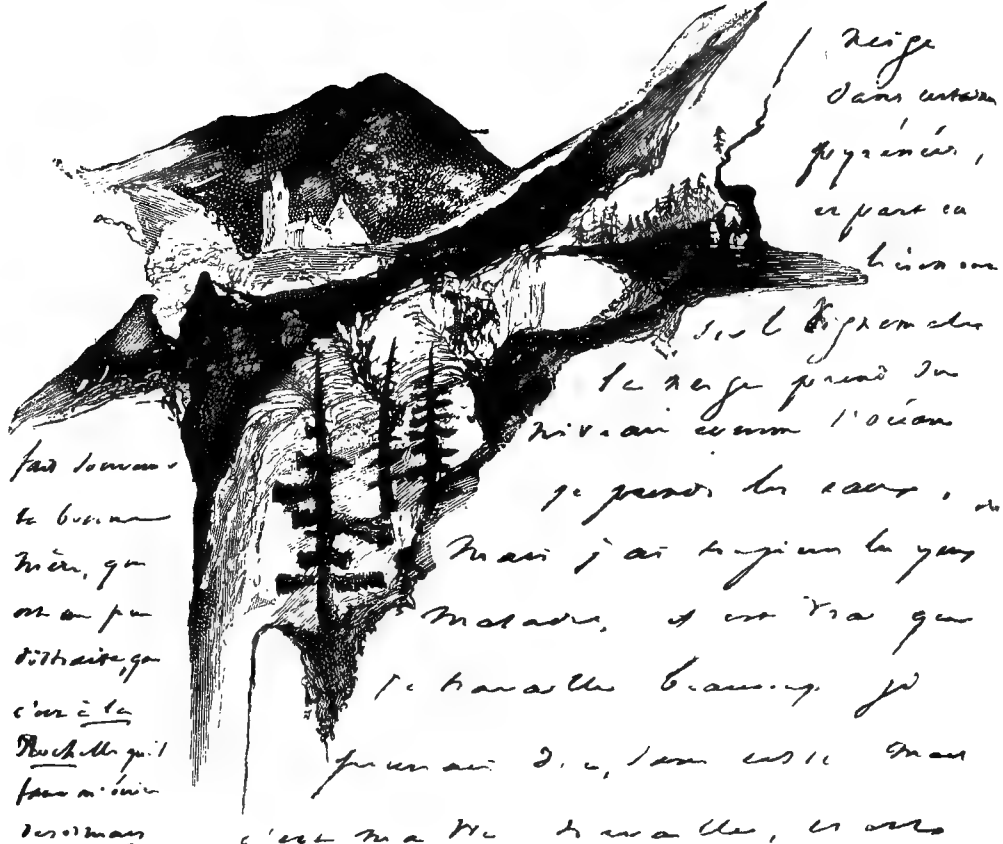 neige
dans certaines
pyrénées,
et part en
sur le Vignemale
la neige prend son
niveau comme l'océan
je prends les eaux,
Mais j'ai toujours les yeux
malades, il est vrai que
je travaille beaucoup je
pourrais dire, sans cesse mais
c'est ma vie travailler, et
fait souvenir
ta bonne
mère, qui
est un peu
distraite, que
c'est à la
Rochelle qu'il
faut m'écrire
désormais